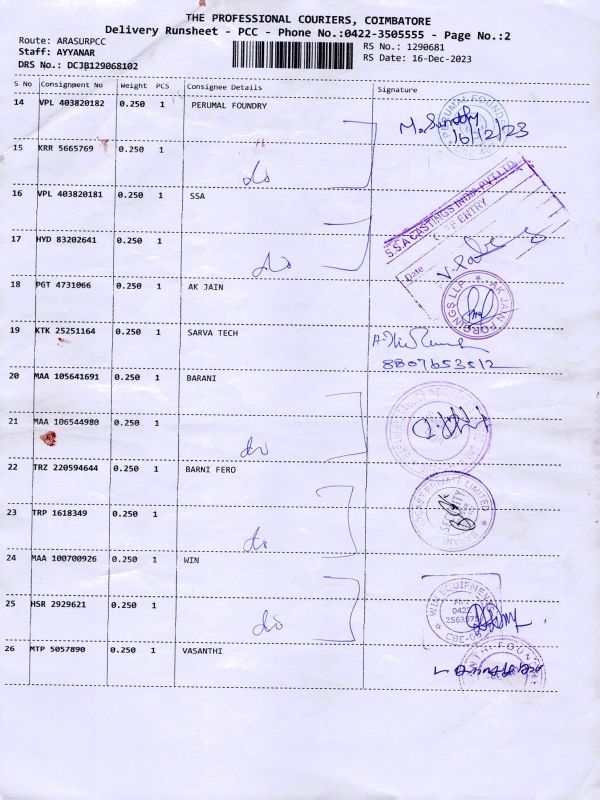 THE PROFESSIONAL COURIERS, COIMBATORE
Delivery Runsheet - PCC - Phone No.:0422-3505555 - Page No.:2
Route: ARASURPCC
RS No.: 1290681
Staff: AYYANAR
RS Date: 16-Dec-2023
DRS No.: DCJB129068102
S No Consignment No Weight PCS Consignee Details Signature
14 VPL 403820182 0.250 1 PERUMAL FOUNDRY
16/12/23
15 KRR 5665769 0.250 1 do
16 VPL 403820181 0.250 1 SSA
S.S.A CASTINGS INDIA PVT LTD
ENTRY
Date
17 HYD 83202641 0.250 1 do
18 PGT 4731066 0.250 1 AK JAIN
AK JAIN FORGINGS LLP
19 KTK 25251164 0.250 1 SARVA TECH
8807653512
20 MAA 105641691 0.250 1 BARANI
21 MAA 106544980 0.250 1 do
22 TRZ 220594644 0.250 1 BARNI FERO
PRIVATE LIMITED
23 TRP 1618349 0.250 1 do
24 MAA 100700926 0.250 1 WIN
WIN EQUIPMENT
PH:
0422
25 HSR 2929621 0.250 1 do
26 MTP 5057890 0.250 1 VASANTHI